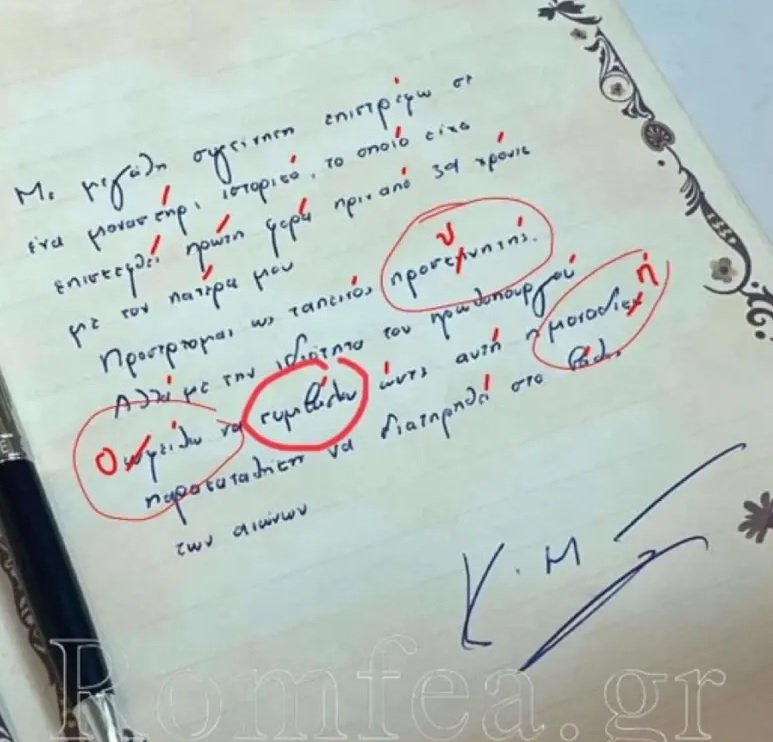 Με μεγάλη συγκίνηση επιστρέφω σε
ένα μοναστήρι ιστορικό, το οποίο είχα
επισκεφθεί πρώτη φορά πριν από 39 χρόνια
με τον πατέρα μου
Προσέρχομαι ως ταπεινός προσκυνητής.
υ
Αλλά με την ιδιότητα του πρωθυπουργού
ή
Ο ωφείλω να συμβάλω ώστε αυτή η μοναδική
παρακαταθήκη να διατηρηθεί στο
των αιώνων
Κ. Μ
Romfea.gr